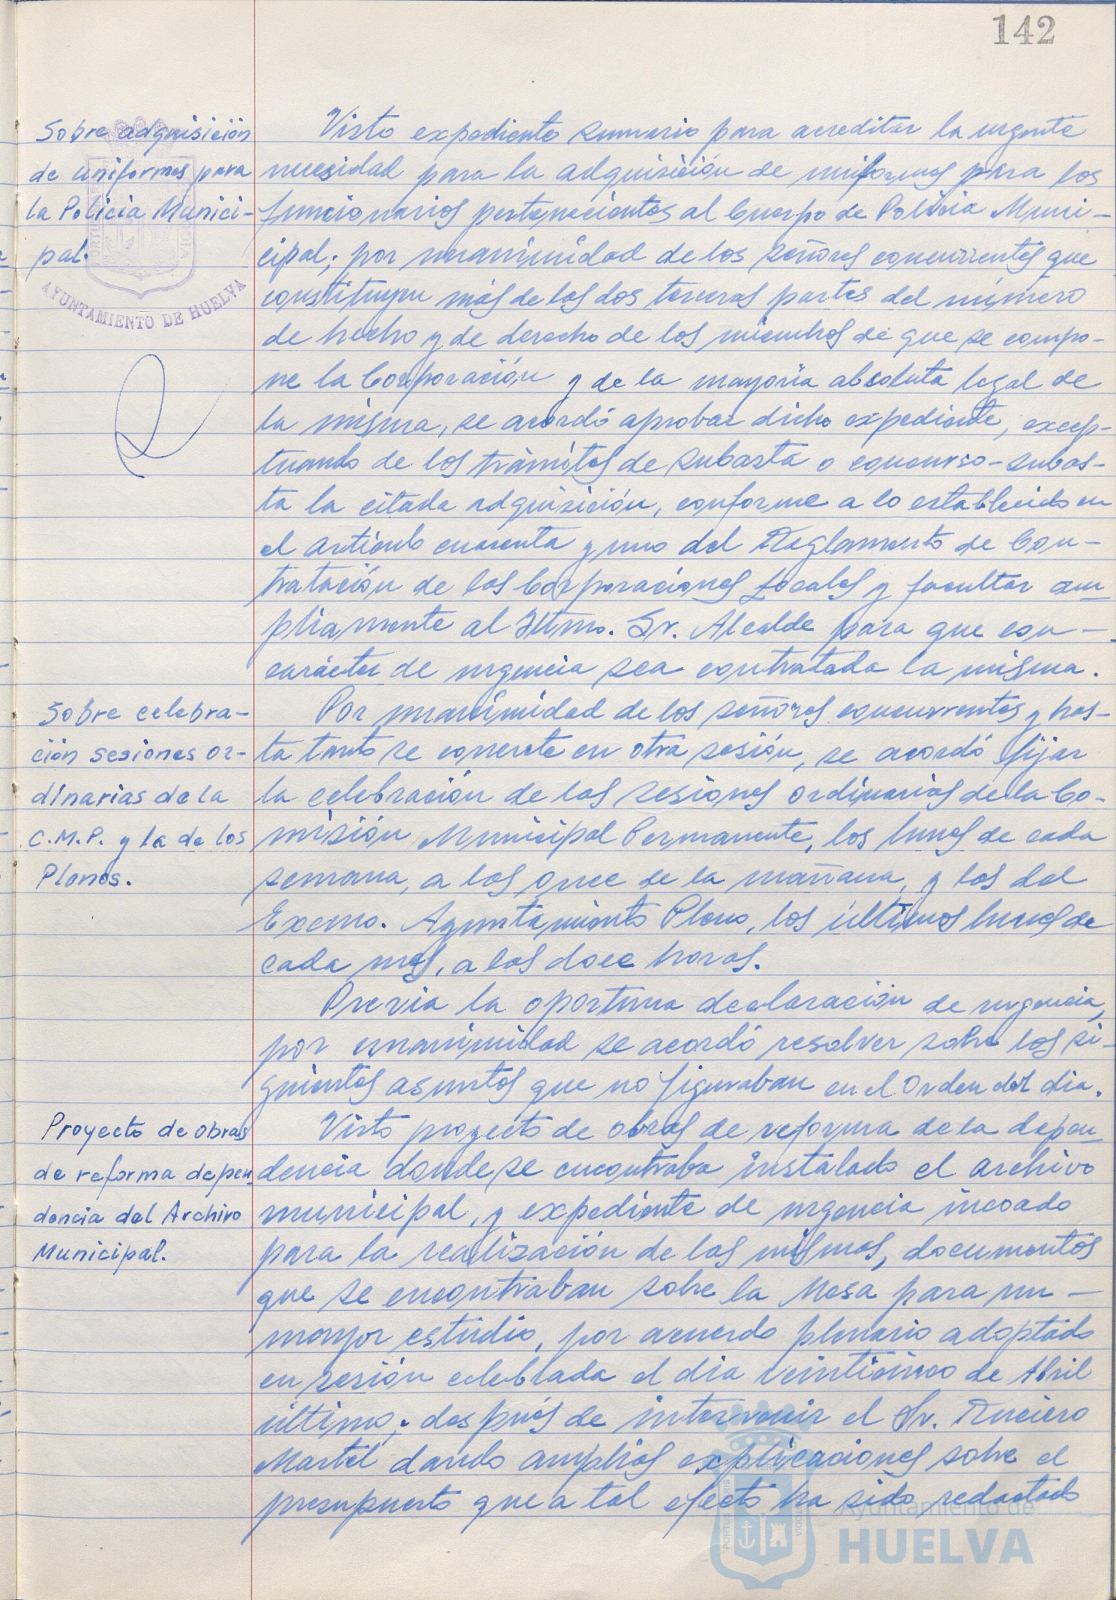 142
Sobre adquisición
de uniformes para
la Policia Munici-
pal.
AYUNTAMIENTO DE HUELVA
Visto expediente sumario para acreditar la urgente
necesidad para la adquisición de uniformes para los
funcionarios pertenecientes al Cuerpo de Policia Muni-
cipal; por unanimidad de los señores concurrentes que
constituyen más de las dos terceras partes del número
de hecho y de derecho de los miembros de que se compo-
ne la Corporación y de la mayoría absoluta legal de
la misma, se acordó aprobar dicho expediente, excep-
tuando de los trámites de subasta o concurso-subas-
ta la citada adquisición, conforme a lo establecido en
el artículo cuarenta y uno del Reglamento de Con-
tratación de las Corporaciones Locales y facultar am-
pliamente al Iltmo. Sr. Alcalde para que con-
carácter de urgencia sea contratada la misma.
Sobre celebra-
ción sesiones or-
dinarias de la
C.M.P. y la de los
Plenos.
Por unanimidad de los señores concurrentes y has-
ta tanto se concrete en otra sesión, se acordó fijar
la celebración de las sesiones ordinarias de la Co-
misión Municipal Permanente, los lunes de cada
semana, a las once de la mañana, y las del
Excmo. Ayuntamiento Pleno, los últimos lunes de
cada mes, a las doce horas.
Previa la oportuna declaración de urgencia,
por unanimidad se acordó resolver sobre los si-
guientes asuntos que no figuraban en el Orden del dia.
Proyecto de obras
de reforma depen-
dencia del Archivo
Municipal.
Visto proyecto de obras de reforma de la depen-
dencia donde se encontraba instalado el archivo
municipal, y expediente de urgencia incoado
para la realización de las mismas, documentos
que se encontraban sobre la Mesa para un-
mayor estudio, por acuerdo plenario adoptado
en sesión celebrada el dia veinticinco de Abril
último; después de intervenir el Sr. Ruciero
Martel dando amplias explicaciones sobre el
presupuesto que a tal efecto ha sido redactado
Ayuntamiento de
HUELVA